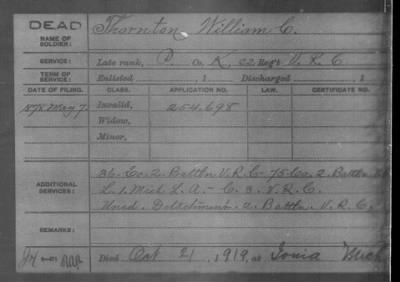 DEAD
NAME OF SOLDIER: Thornton William C.
SERVICE: Late rank, P Co. K 22 Reg't V. R. C
TERM OF SERVICE: Enlisted , 1 Discharged , 1
DATE OF FILING. CLASS. APPLICATION NO. LAW. CERTIFICATE NO.
May 7 Invalid, 254.698
Widow,
Minor,
ADDITIONAL SERVICES: 36. Co. 2. Battln V.R.C- 75 Co. 2. Battln V.R
L. 1. Mich L. A. - C. 3. V.R.C.
Unasd. Detachment. 2. Battn. V.R.C.
REMARKS:
Died Oct 21, 1919, at Ionia Mich